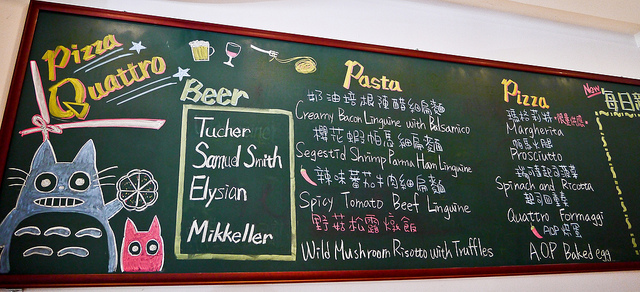 Pizza
Quattro
Beer
Tucher
Samuel Smith
Elysian
Mikkeller
Pasta
奶油培根陳醋細扁麵
Creamy Bacon Linguine with Balsamico
櫻花蝦帕瑪細扁麵
Segestid Shrimp Parma Ham Linguine
辣味番茄牛肉細扁麵
Spicy Tomato Beef Linguine
野菇松露燉飯
Wild Mushroom Risotto with Truffles
Pizza
瑪格莉特
Margherita
帕瑪火腿
Prosciutto
Spinach and Ricotta
Quattro Formaggi
AOP
A.O.P Baked egg
Now
每日